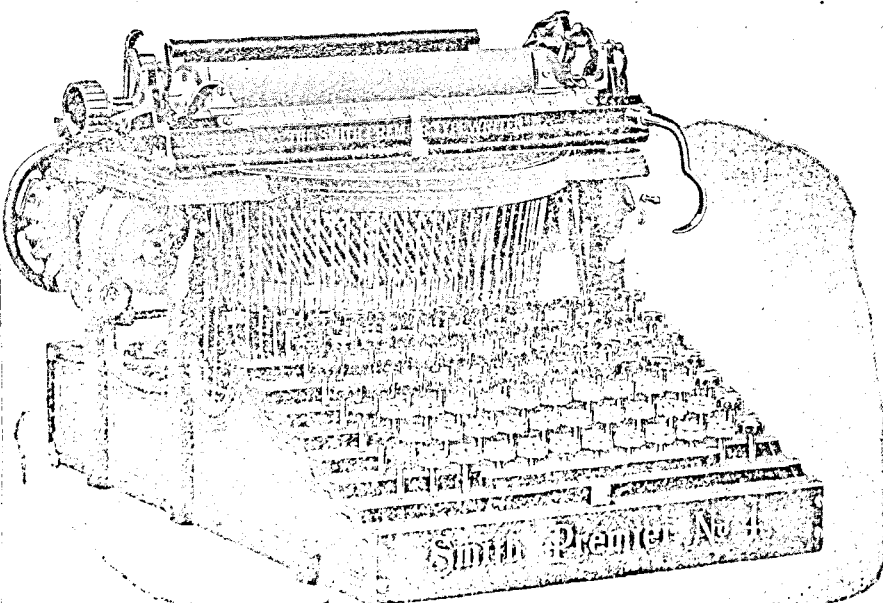 THE SMITH PREMIER TYPEWRITER
Smith Premier No 4